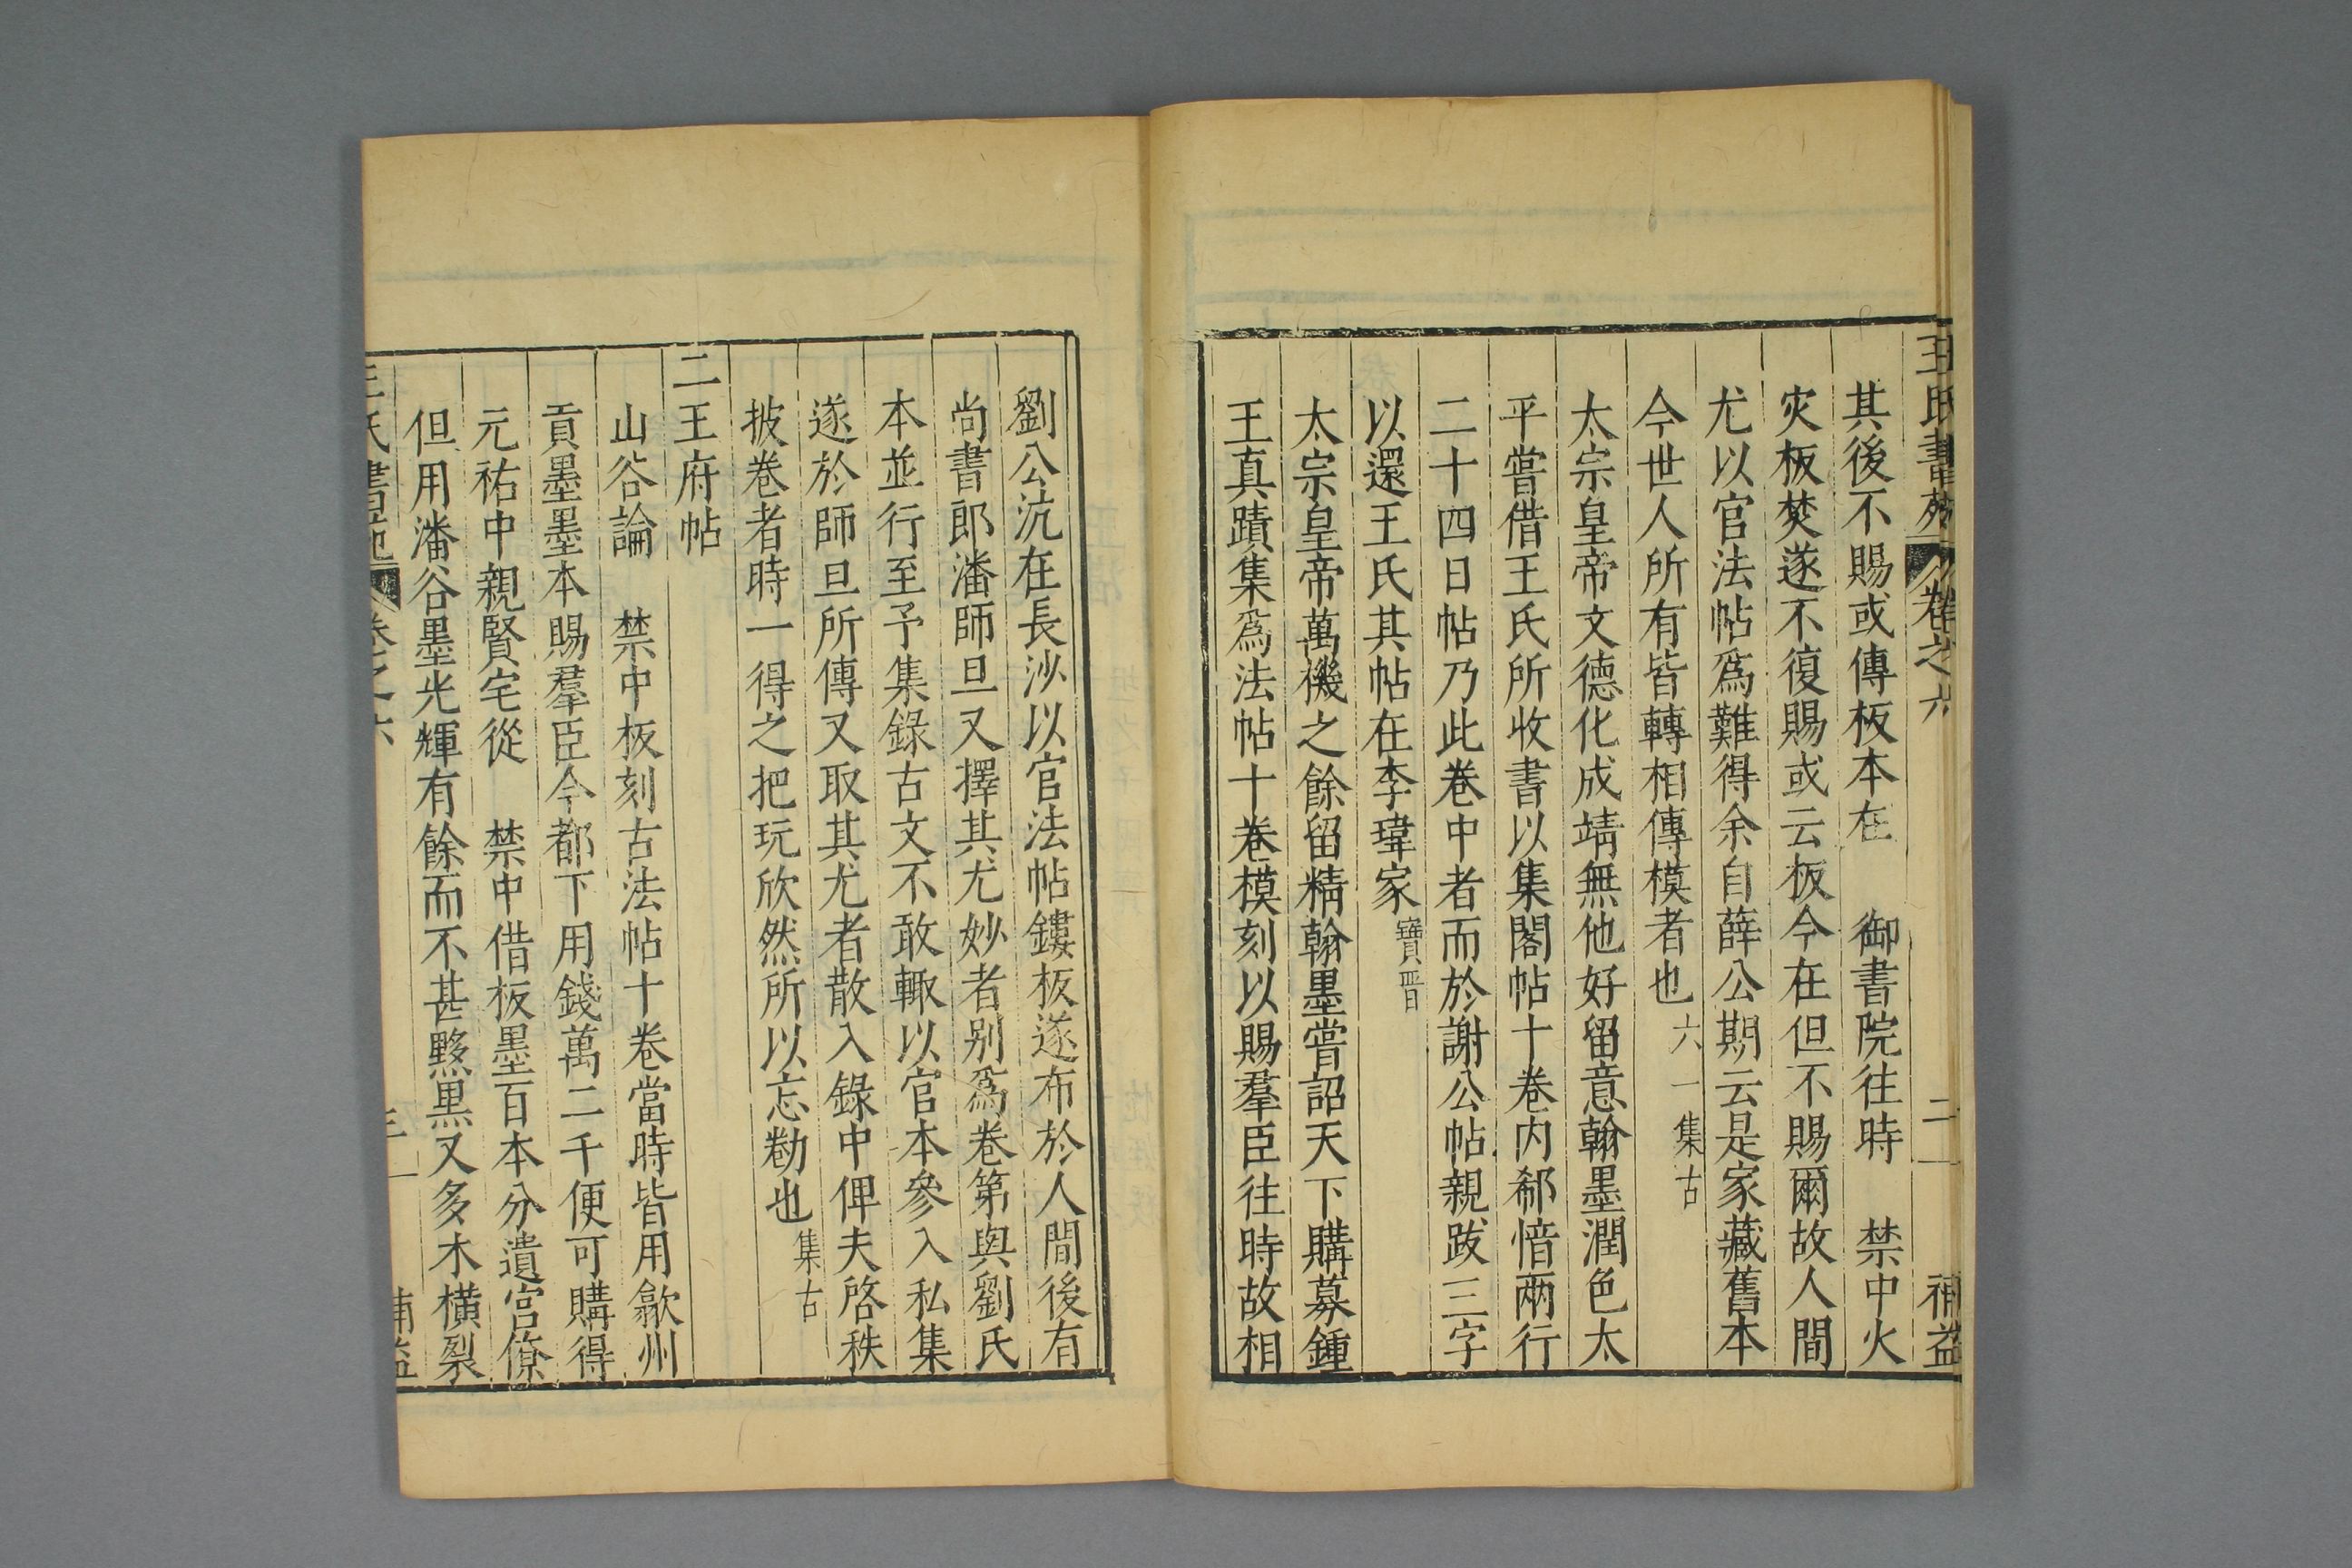 王氏書苑 卷之六 二 補益
其後不賜或傳板本在 御書院往時 禁中火
灾板焚遂不復賜或云板今在但不賜爾故人間
尤以官法帖爲難得余自薛公期云是家藏舊本
今世人所有皆轉相傳模者也 六一集古
太宗皇帝文德化成靖無他好留意翰墨潤色太
平嘗借王氏所收書以集閣帖十卷内郗愔兩行
二十四日帖乃此卷中者而於謝公帖親跋三字
以還王氏其帖在李瑋家 寶晋
太宗皇帝萬機之餘留精翰墨嘗詔天下購募鍾
王真蹟集爲法帖十卷模刻以賜羣臣往時故相
劉公沆在長沙以官法帖鏤板遂布於人間後有
尚書郎潘師旦又擇其尤妙者别爲卷第與劉氏
本並行至予集錄古文不敢輙以官本參入私集
遂於師旦所傳又取其尤者散入錄中俾夫啓秩
披卷者時一得之把玩欣然所以忘勌也 集古
二王府帖
山谷論 禁中板刻古法帖十卷當時皆用歙州
貢墨墨本賜羣臣今都下用錢萬二千便可購得
元祐中親賢宅從 禁中借板墨百本分遺宫僚
但用潘谷墨光輝有餘而不甚黟黒又多木横裂
王氏書苑 卷之六 三 補益